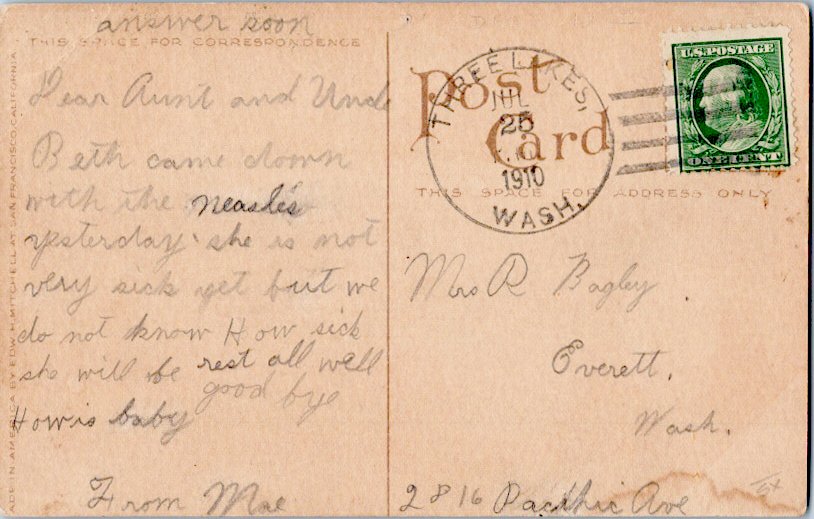 answer soon
THIS SPACE FOR CORRESPONDENCE
Dear Aunt and Uncle
Beth came down
with the neasles
yesterday she is not
very sick yet but we
do not know How sick
she will be rest all well
good bye
How is baby
From Mae
MADE IN AMERICA BY EDW. H. MITCHELL AT SAN FRANCISCO, CALIFORNIA.
Post
Card
THIS SPACE FOR ADDRESS ONLY
THREE LAKES,
JUL
25
1910
WASH.
U.S. POSTAGE
ONE CENT
Mrs R Bagley
Everett.
Wash.
2816 Pacific Ave